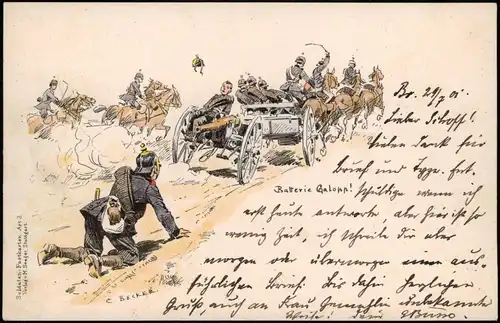 Br. 29/7 01.
Lieber Schoff!
Vielen Dank für
Brief und Type. Ent-
Batterie Galopp!
schuldige wenn ich
erst heute antworte, aber hier ist so
wenig Zeit, ich schreibe dir aber
morgen oder übermorgen einen aus-
führlichen Brief. Bis dahin herzlichen
Gruss, auch an Frau Gemahlin unbekannter
Weise! Dein Bruno.
C. BECKER
Soldaten-Postkarten. Art 3.
Verlag M. Seeger Stuttgart.